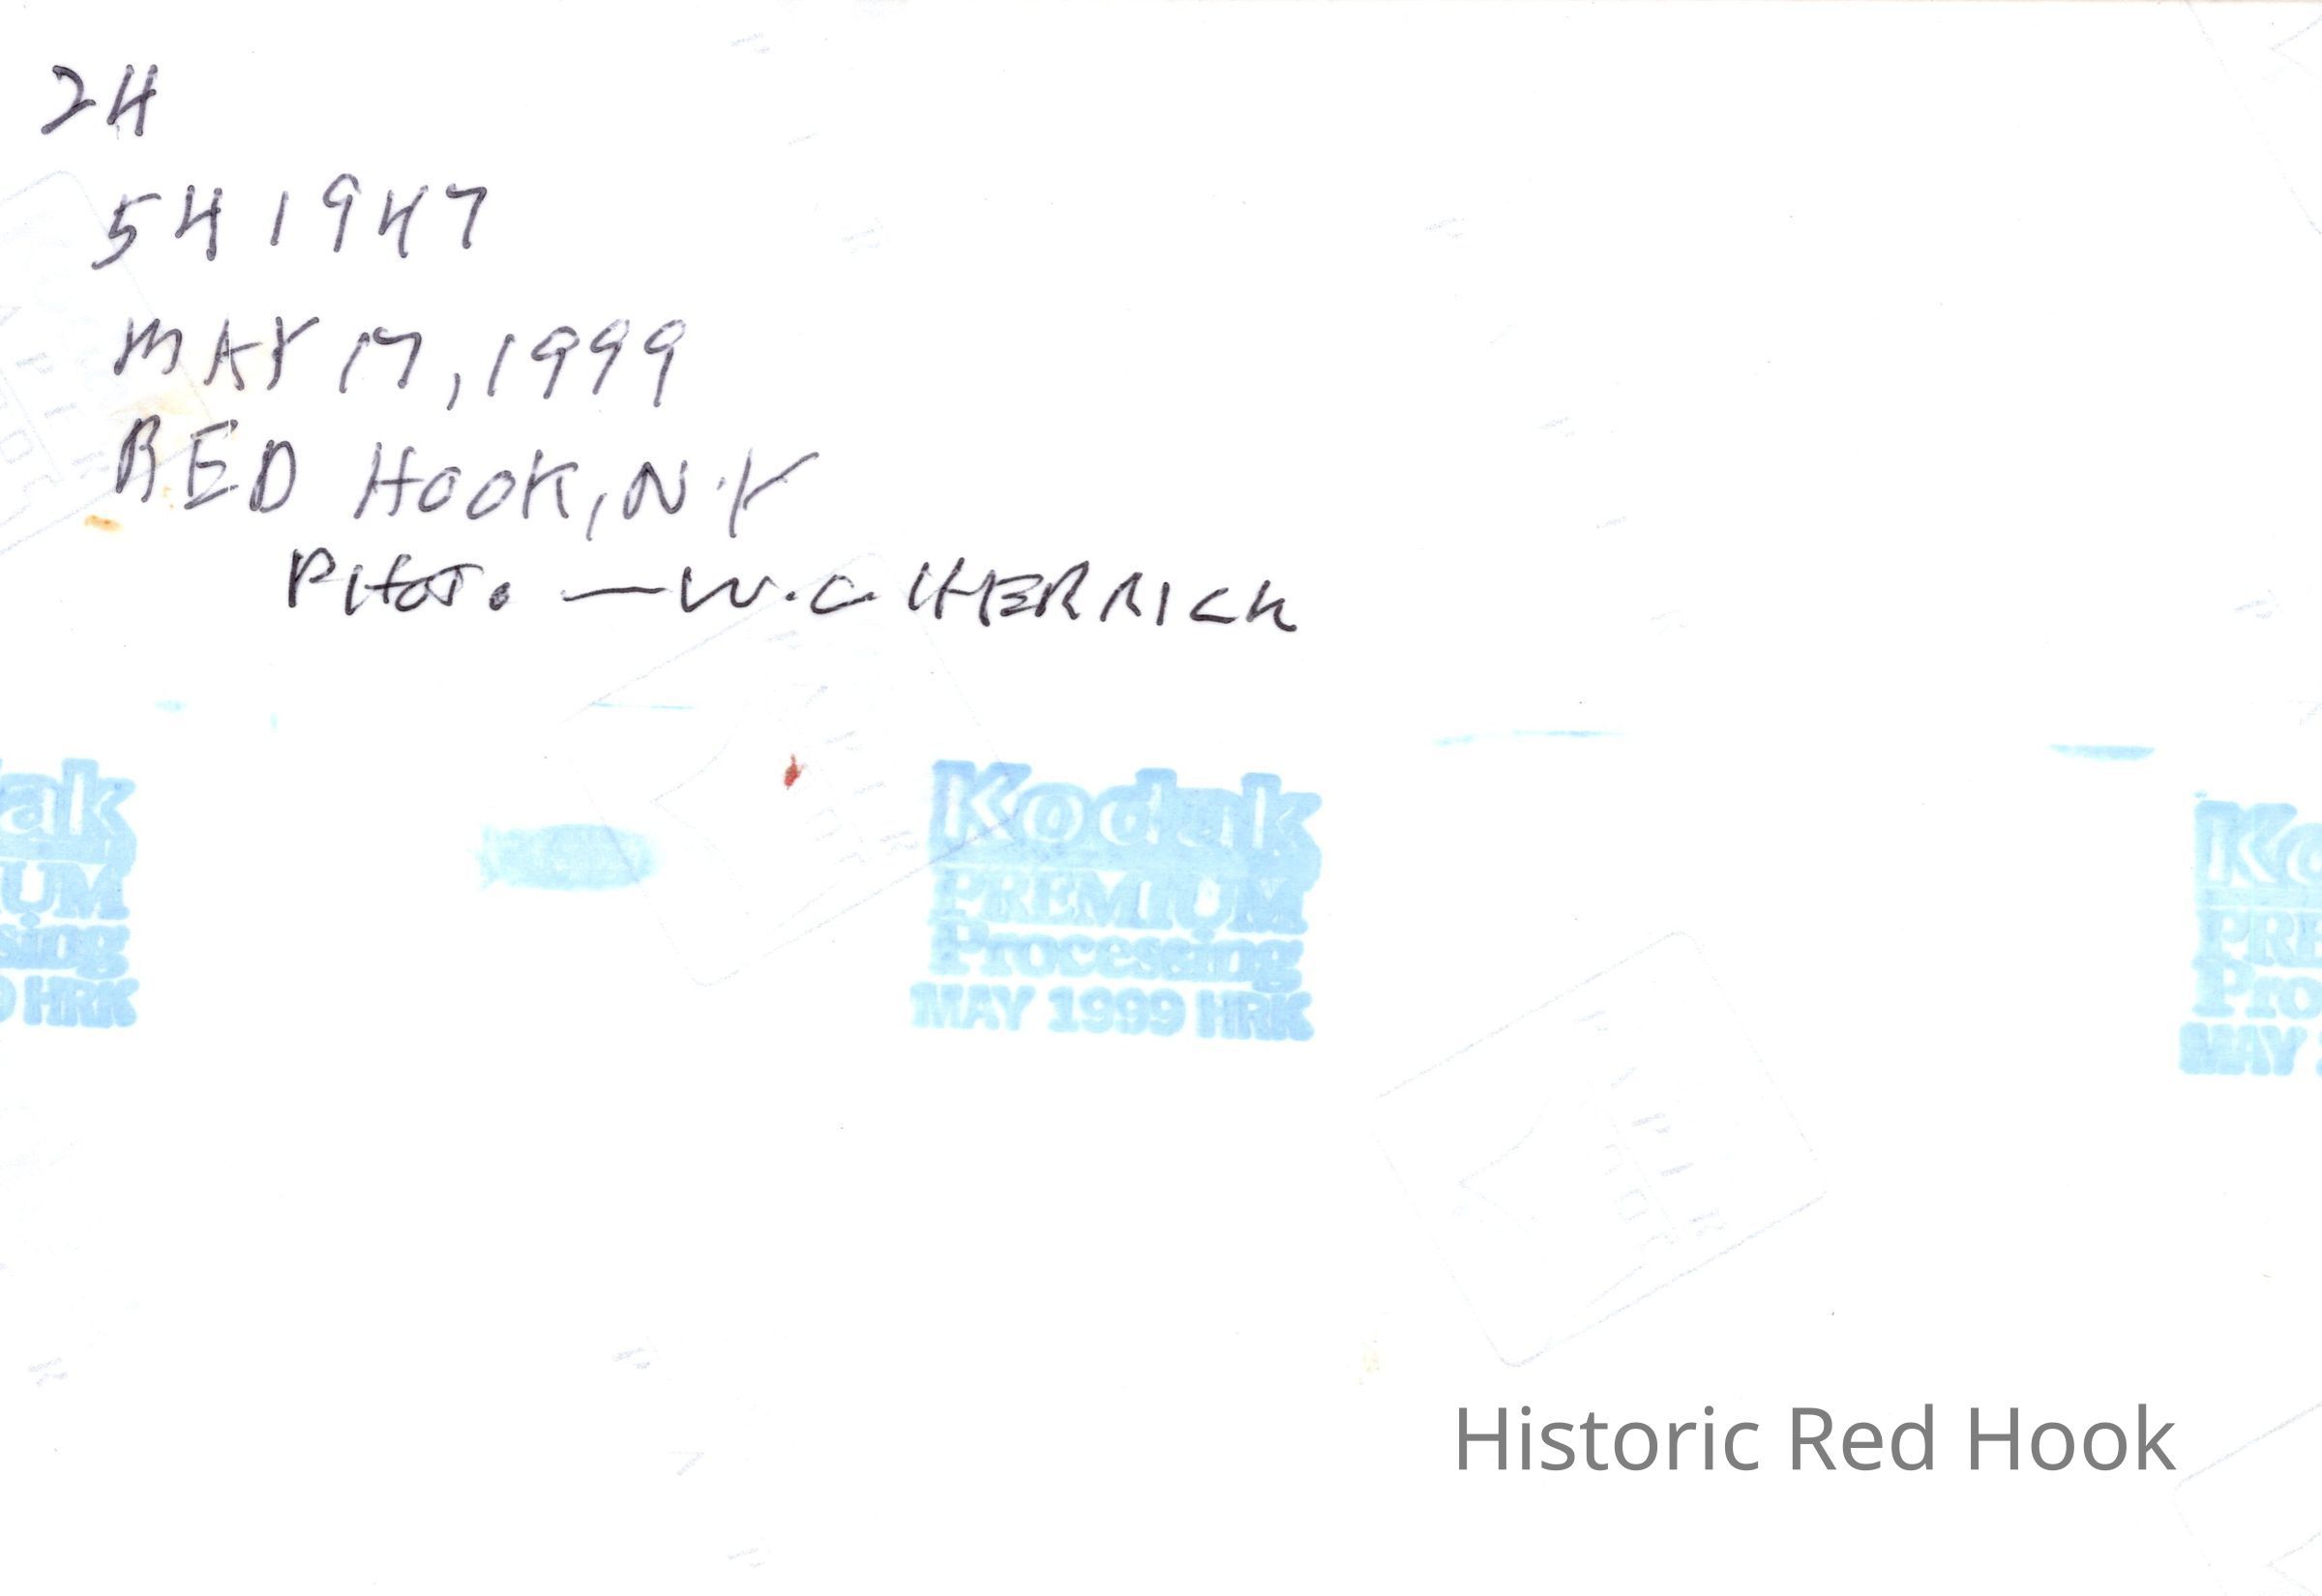 24
541947
MAY 17, 1999
RED HOOK, N.Y
PHOTO — W.C. HERRICK
Kodak
PREMIUM
Processing
MAY 1999 HRK
ak
UM
sing
HRK
Ko
PRE
Pro
MAY
Historic Red Hook